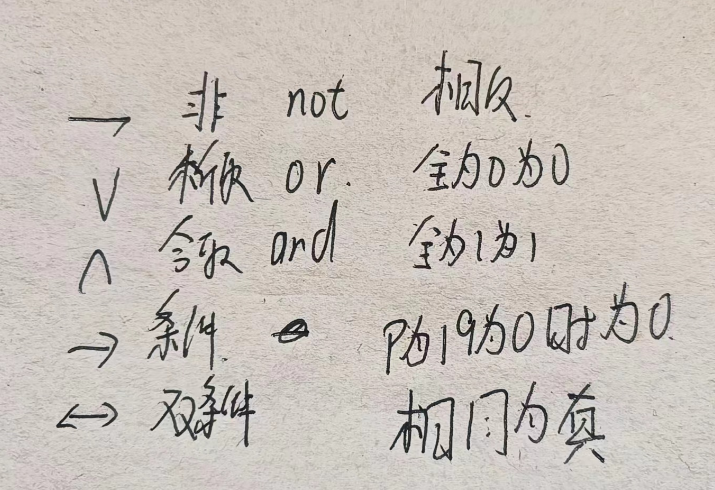 ¬ 非 not 相反.
∨ 析取 or. 全为0为0
∧ 合取 and 全为1为1
→ 条件. P为1q为0时为0.
↔ 双条件 相同为真